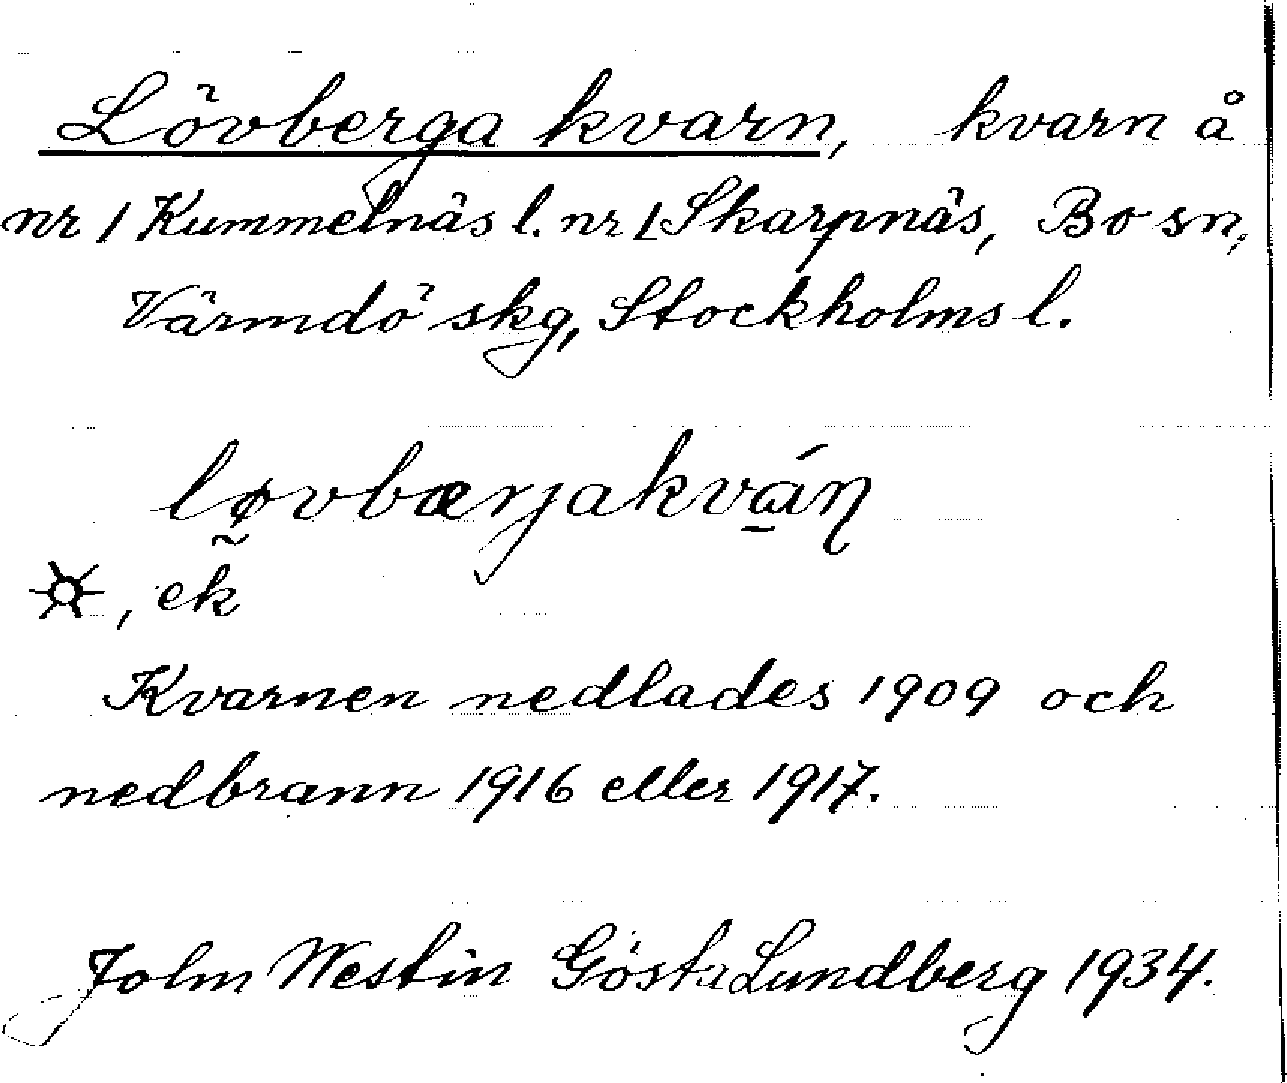 Lövberga kvarn, kvarn å
nr 1 Kummelnäs l. nr 1 Skarpnäs, Bo sn,
Värmdö skg, Stockholms l.
løvbærjakvạ́ɳ
☼, ek
Kvarnen nedlades 1909 och
nedbrann 1916 eller 1917.
John Westin Gösta Lundberg 1934.